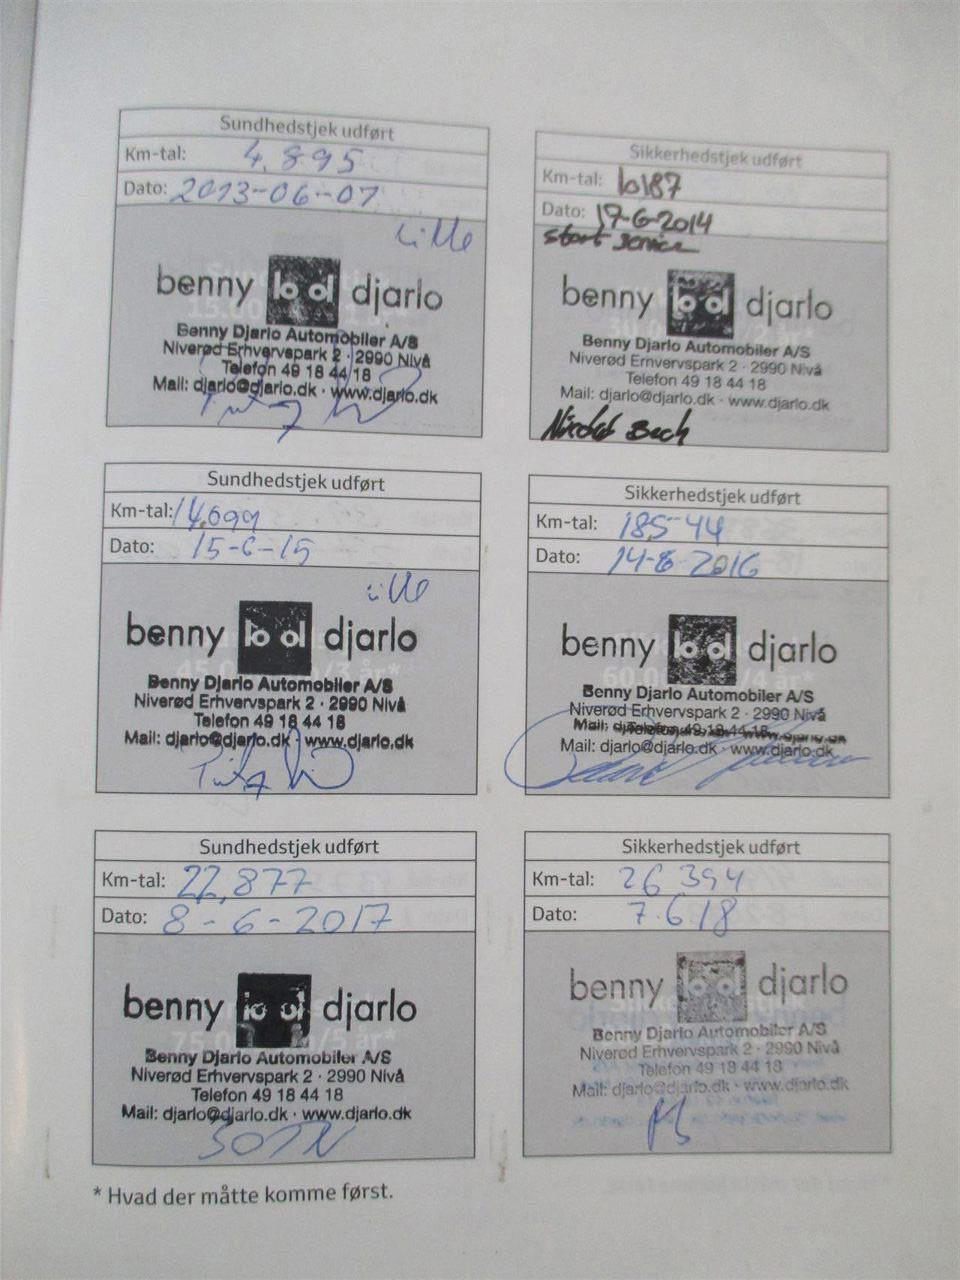 Sundhedstjek udført
Km-tal: 4.895
Dato: 2013-06-07
Lille
benny djarlo
Benny Djarlo Automobiler A/S
Niverød Erhvervspark 2 · 2990 Nivå
Telefon 49 18 44 18
Mail: djarlo@djarlo.dk · www.djarlo.dk
Sikkerhedstjek udført
Km-tal: 10187
Dato: 17-6-2014
stort service
benny djarlo
Benny Djarlo Automobiler A/S
Niverød Erhvervspark 2 · 2990 Nivå
Telefon 49 18 44 18
Mail: djarlo@djarlo.dk · www.djarlo.dk
Bech
Sundhedstjek udført
Km-tal: 14.699
Dato: 15-6-15
Lille
benny djarlo
45.000 km/3 år*
Benny Djarlo Automobiler A/S
Niverød Erhvervspark 2 · 2990 Nivå
Telefon 49 18 44 18
Mail: djarlo@djarlo.dk · www.djarlo.dk
Sikkerhedstjek udført
Km-tal: 18544
Dato: 14-6-2016
benny djarlo
60.000 km/4 år*
Benny Djarlo Automobiler A/S
Niverød Erhvervspark 2 · 2990 Nivå
Telefon 49 18 44 18
Mail: djarlo@djarlo.dk · www.djarlo.dk
Sundhedstjek udført
Km-tal: 22,877
Dato: 8-6-2017
benny djarlo
75.000 km/5 år*
Benny Djarlo Automobiler A/S
Niverød Erhvervspark 2 · 2990 Nivå
Telefon 49 18 44 18
Mail: djarlo@djarlo.dk · www.djarlo.dk
Sikkerhedstjek udført
Km-tal: 26394
Dato: 7.6.18
benny djarlo
Benny Djarlo Automobiler A/S
Niverød Erhvervspark 2 · 2990 Nivå
Telefon 49 18 44 18
Mail: djarlo@djarlo.dk · www.djarlo.dk
* Hvad der måtte komme først.